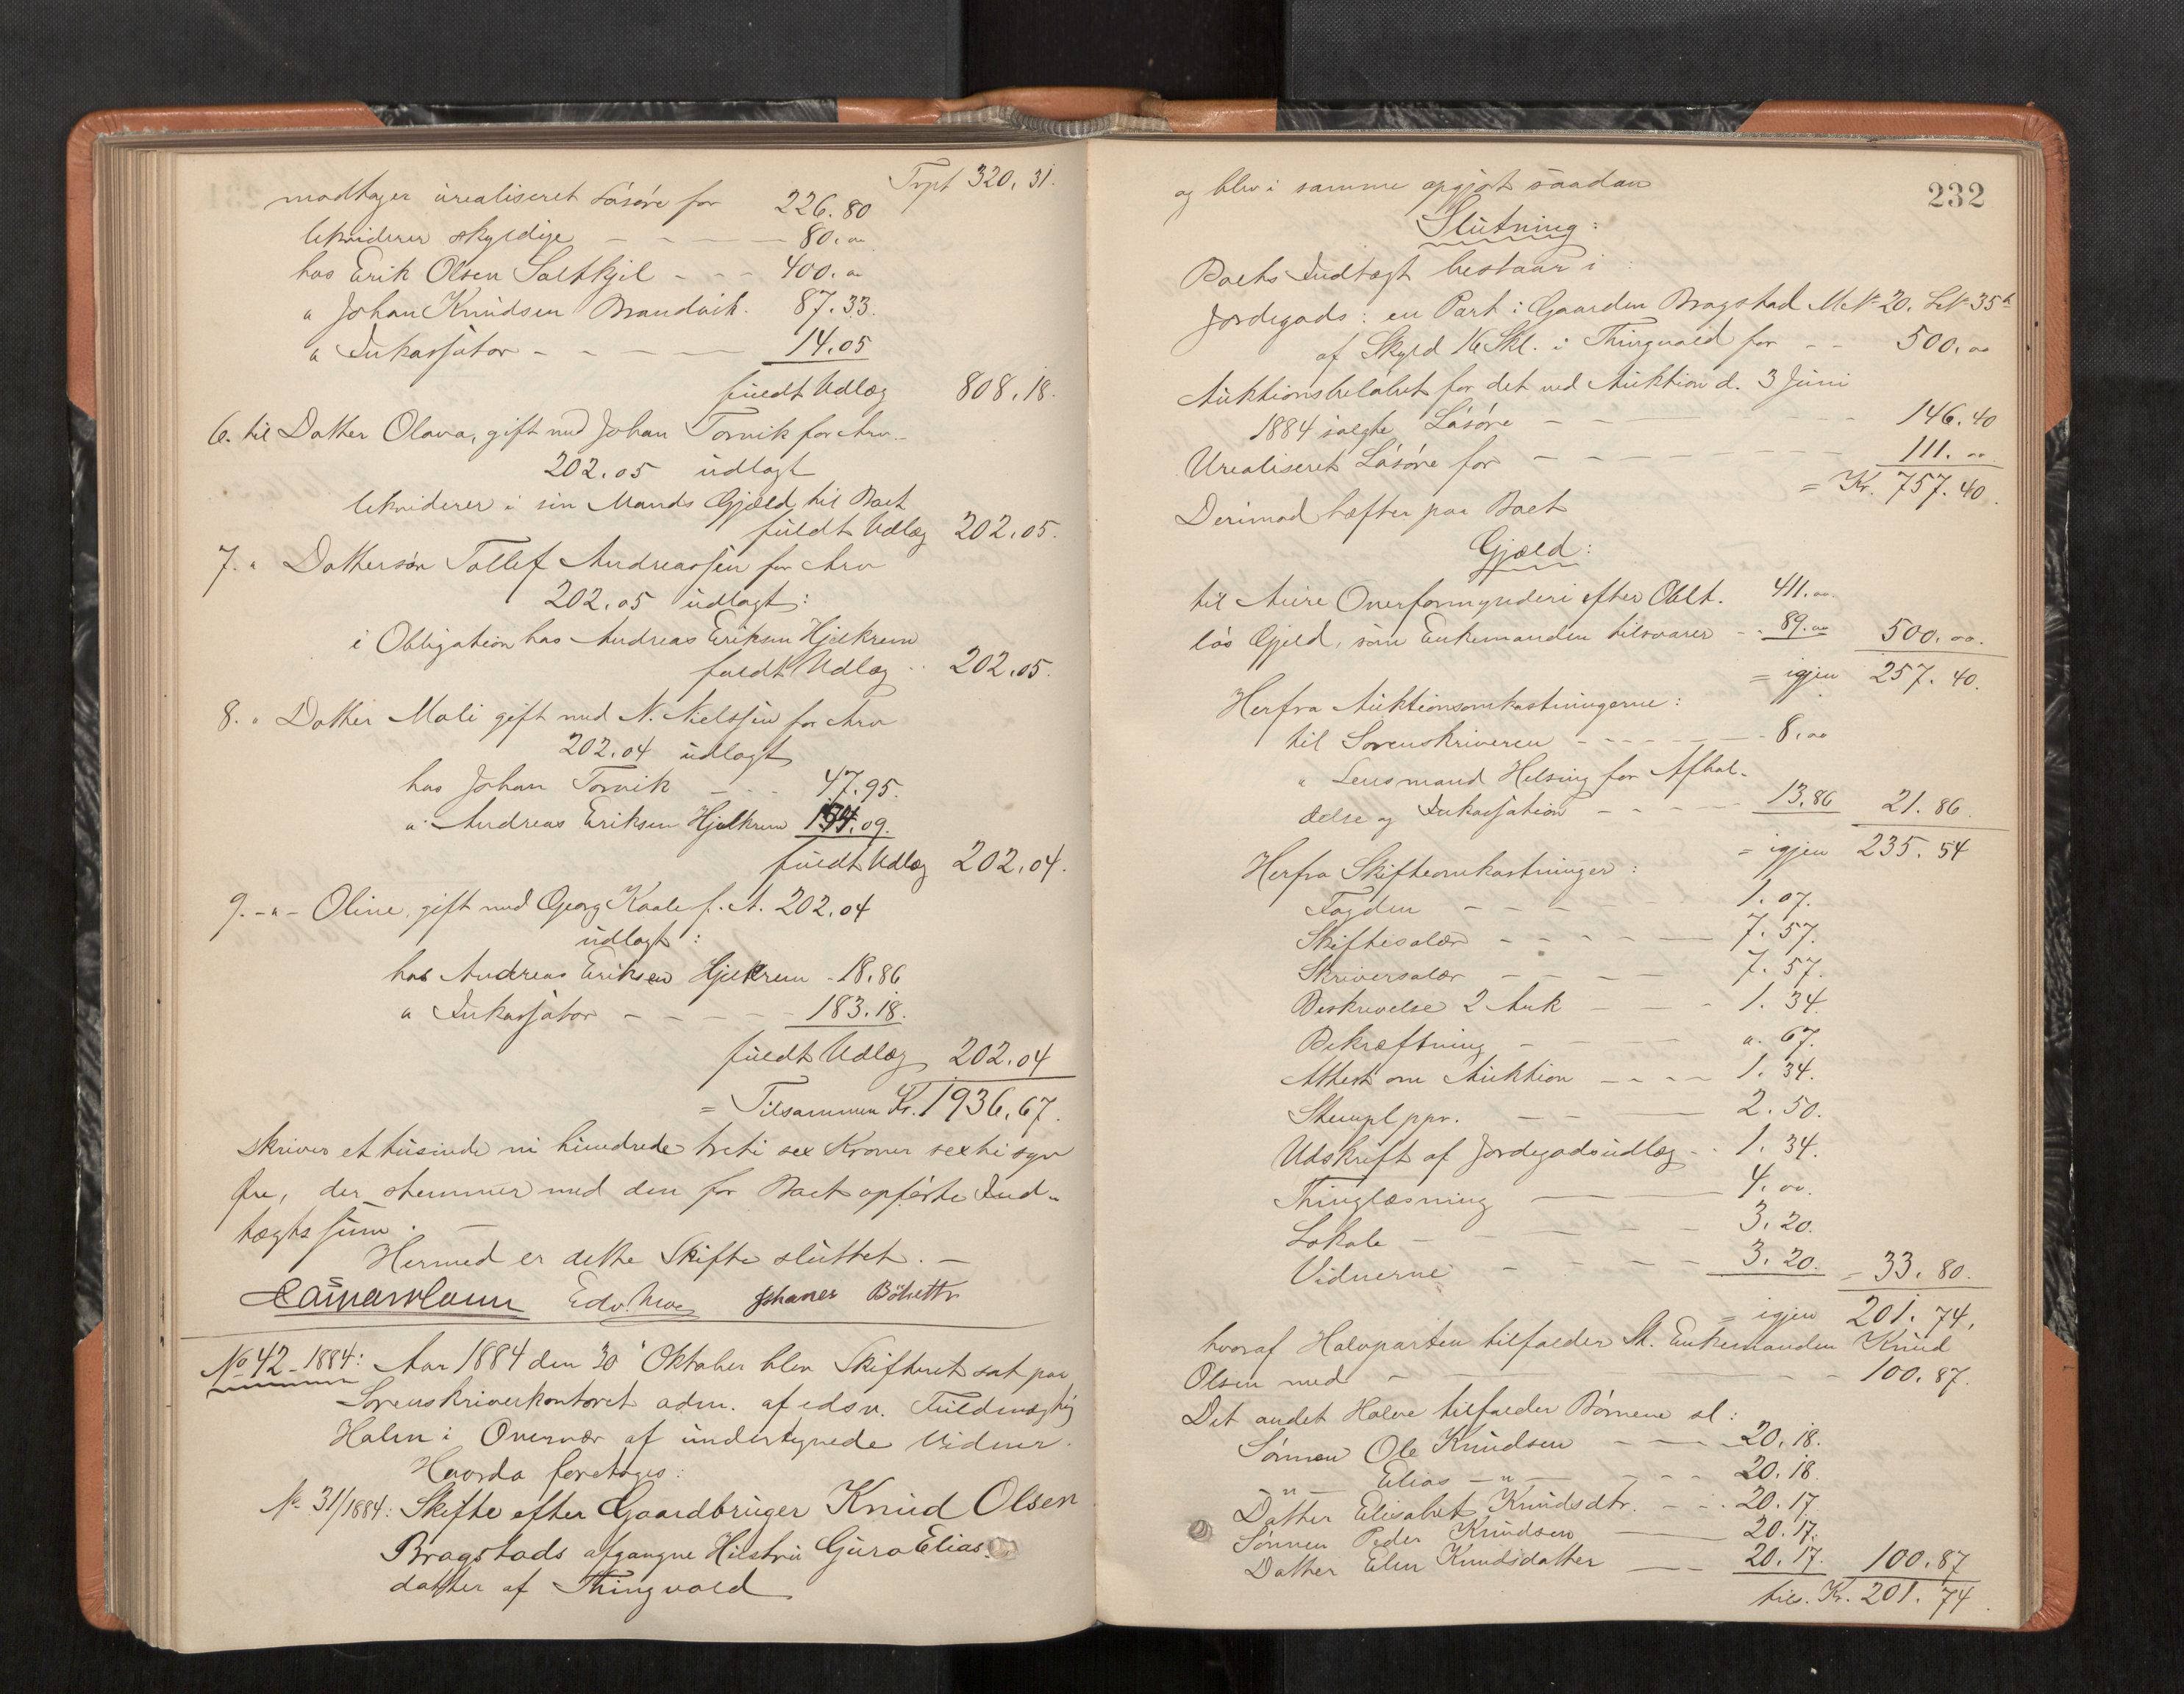 Trpt 320.31.
modtager urealiseret Løsøre for 226.80
likviderer skyldige - - - 80.00
hos Erik Olsen Saltkjil - - - 400.00
" Johan Knudsen Brandvik. 87.33.
" Inkassator - - - 14.05
fuldt Udlæg 808.18.
6. til Datter Olava, gift med Johan Torvik for Arv
202.05 udlagt
likviderer i sin Mands Gjæld til Boet
fuldt Udlæg 202.05.
7. " Dattersøn Tollef Andreassen for Arv
202.05 udlagt:
i Obligation hos Andreas Eriksen Hjelkrem
fuldt Udlæg .. 202.05.
8. " Datter Mali gift med N. Nielssen for Arv
202.04 udlagt
hos Johan Torvik - - - 47.95.
" Andreas Eriksen Hjelkrem 154.09.
fuldt Udlæg 202.04.
9. - " - Oline, gift med Georg Kaale f. A. 202.04
udlagt:
hos Andreas Eriksen Hjelkrem - 18.86
" Inkassator - - - 183.18.
fuldt Udlæg 202.04
= Tilsammen Kr. 1936.67.
skriver et tusinde ni hundrede treti sex Kroner sexti syv
Øre, der stemmer med den for Boet opførte Ind-
tægtssum. -
Hermed er dette Skifte sluttet. -
Edv. Johannes
No 42 - 1884: Aar 1884 den 30 Oktober blev Skifteret sat paa
Sorenskriverkontoret adm. af edsv. Fuldmægtig
Holm i Overvær af undertegnede Vidner.
Hvorda foretoges:
No. 31/1884: Skifte efter Gaardbruger Knud Olsen
Bragstads afgangne Hustru Guro Elias-
datter af Thingvold
232
og blev i samme opgjort saadan
Slutning:
Boets Indtægt bestaar i:
Jordegods: en Part i Gaarden Bragstad M.No 20. L.No 35b
af Skyld 16 Skl. i Thingvold for - - 500.00
Auktionsbeløbet for det ved Auktion d. 3 Juni
1884 solgte Løsøre - - - 146.40
Urealiseret Løsøre for - - - 111.00
= Kr. 757.40.
Derimod hæfter paa Boet
Gjæld:
til Aure Overformynderi efter Oblt. 411.00.
løs Gjeld, som Enkemanden tilsvarer - 89.00 500.00.
= igjen 257.40.
Herfra Auktionsomkostningerne:
til Sorenskriveren - - - 8.00
" Lensmand Helsing for Afhol-
delse og Inkassation - - - 13.86 21.86.
= igjen 235.54
Herfra Skifteomkostninger:
Fogden - - - 1.07.
Skiftesalær - - - 7.57.
Skriversalær - - - 7.57.
Beskrivelse 2 Ark - - - 1.34.
Bekræftning - - - ". 67.
Attest om Auktion - - - 1.34.
Stempl. ppr. - - - 2.50.
Udskrift af Jordegodsudlæg - 1.34.
Thinglæsning - 4.00.
Lokale - - - 3.20.
Vidnerne - - - 3.20. = 33.80.
= igjen 201.74.
hvoraf Halvparten tilfalder St. Enkemanden Knud
Olsen med - - - 100.87.
Det andet Halve tilfalder Børnene sl:
Sønnen Ole Knudsen - - - 20.18.
" Elias - " - - - - 20.18.
Datter Elisabet Knudsdtr. - - 20.17.
Sønnen Peder Knudsen - 20.17.
Datter Elen Knudsdatter - 20.17. 100.87
tils. Kr. 201.74.